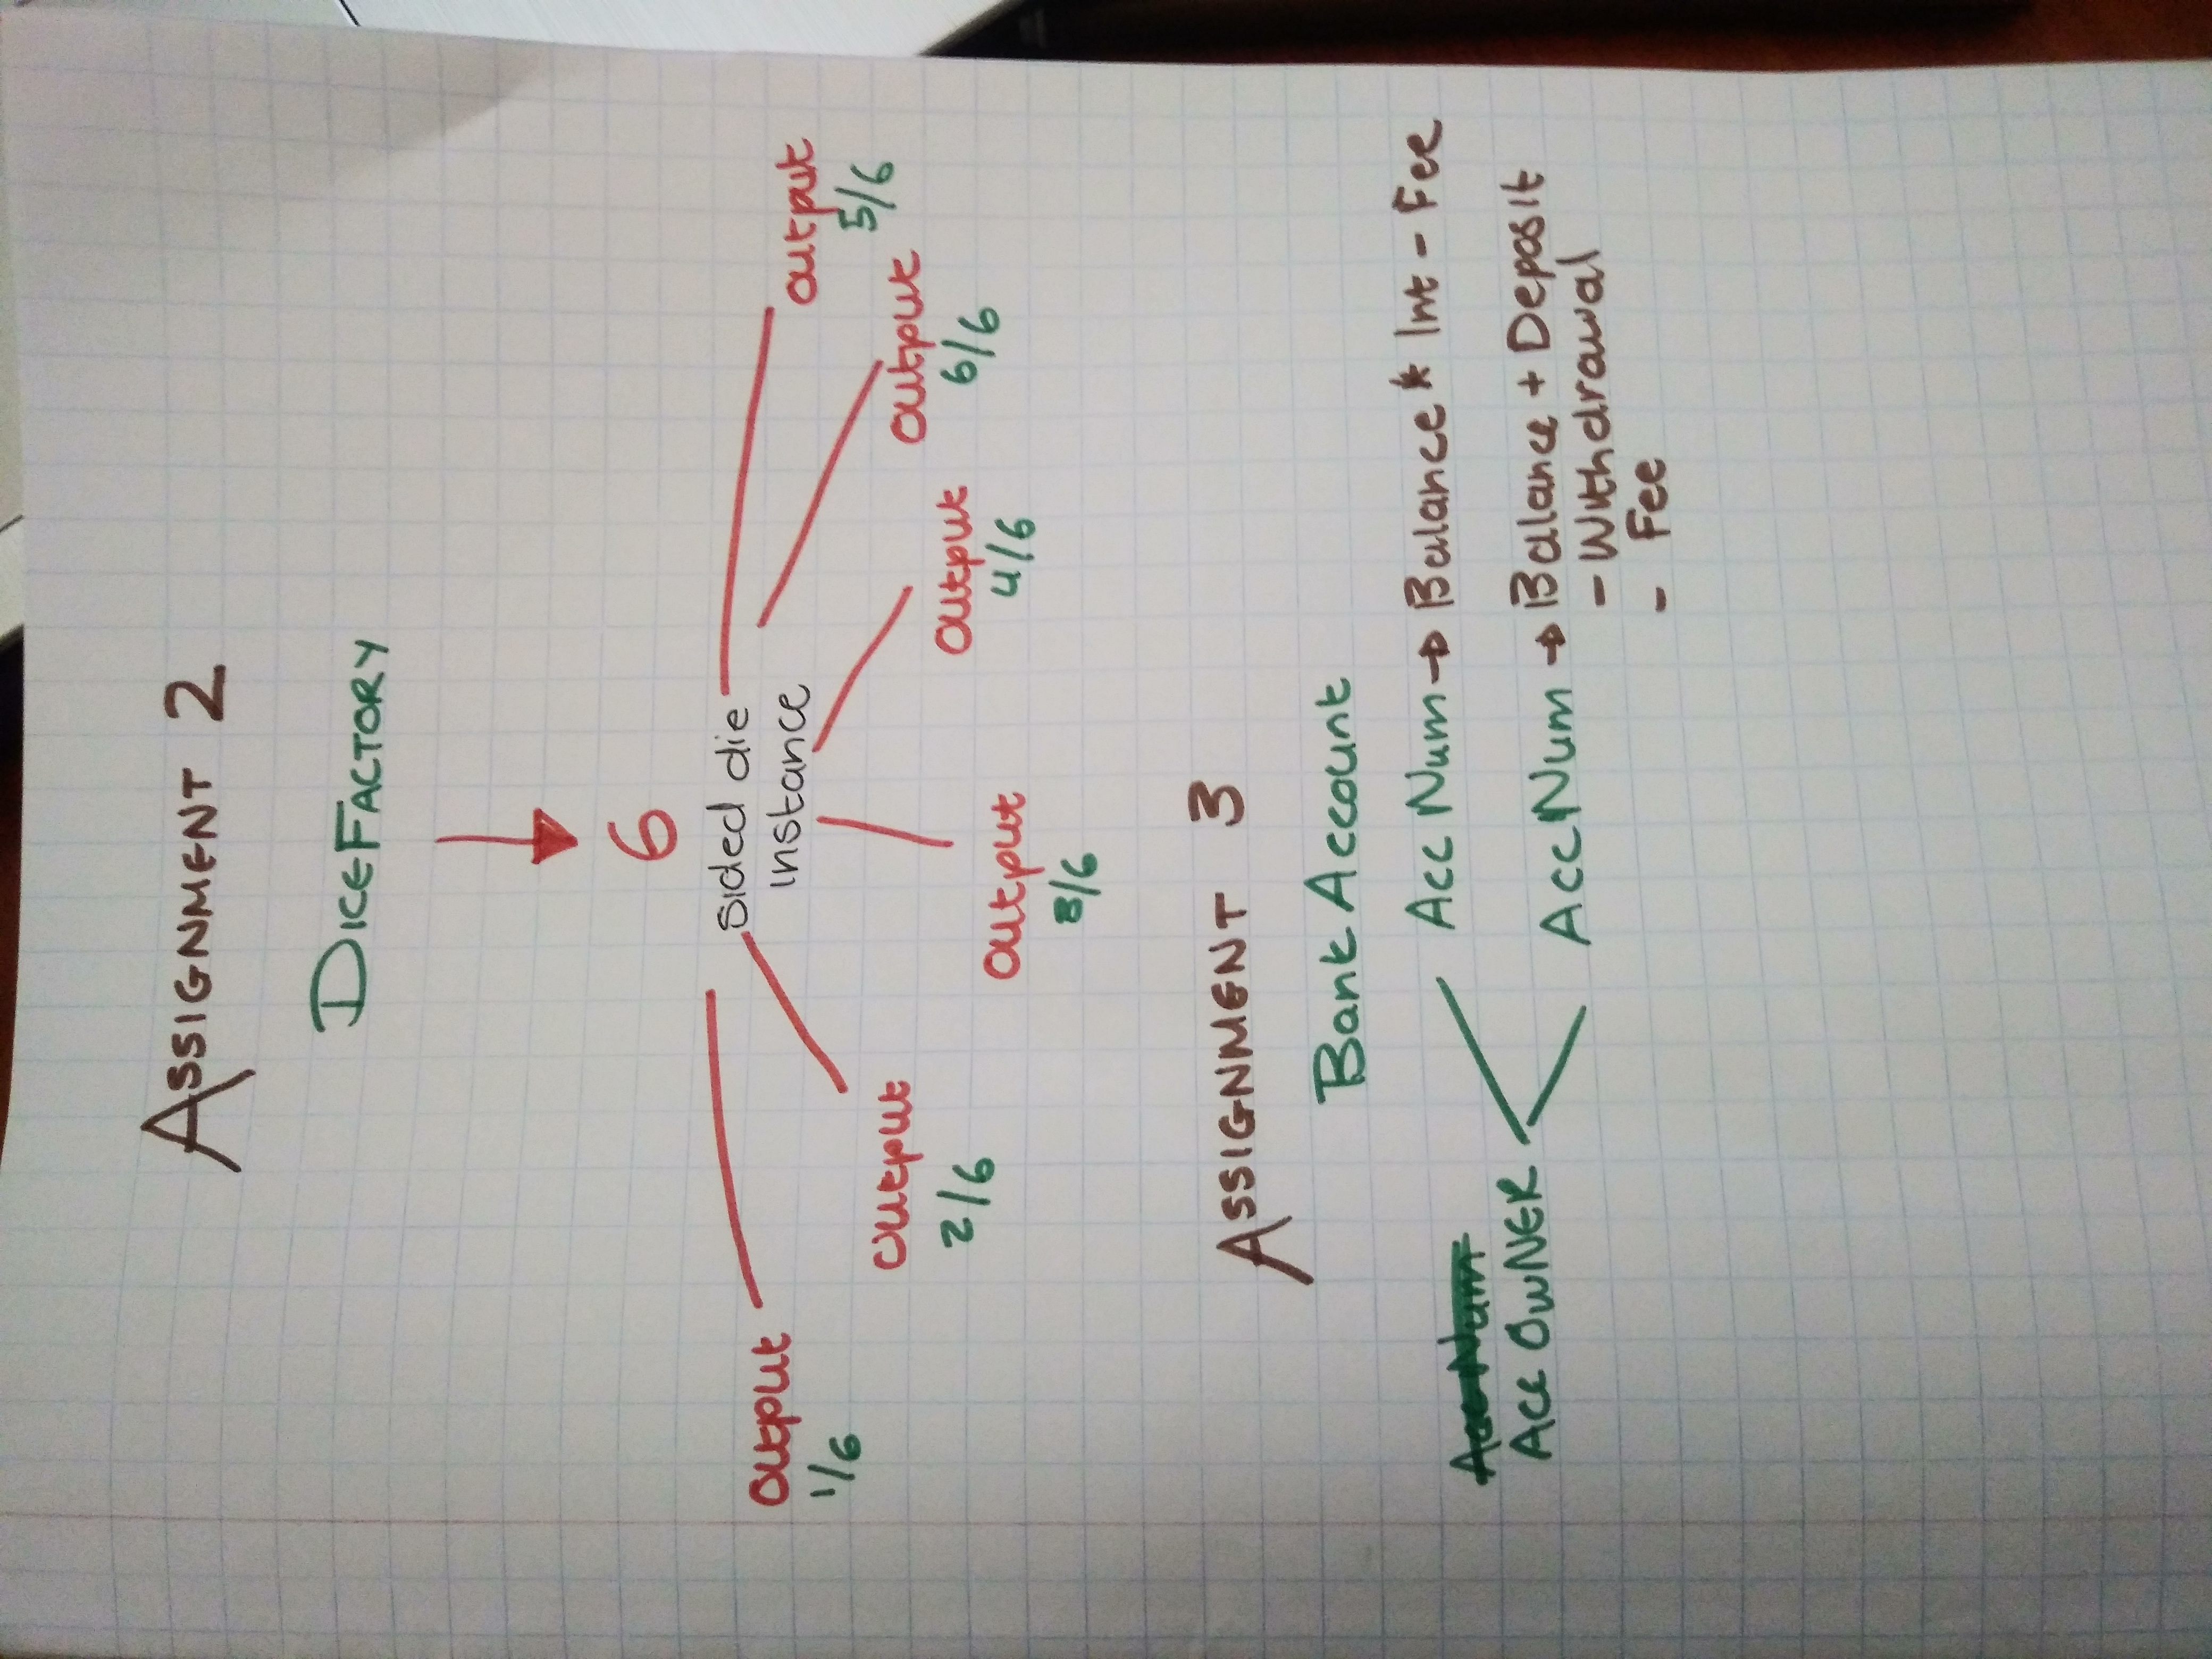 ASSIGNMENT 2
DICEFACTORY
6
sided die
instance
Output
1/6
Output
2/6
Output
3/6
Output
4/6
Output
6/6
Output
5/6
ASSIGNMENT 3
Bank Account
Acc Num
Acc OWNER
Acc Num → Balance * Int - Fee
Acc Num → Balance + Deposit
- Withdrawal
- Fee